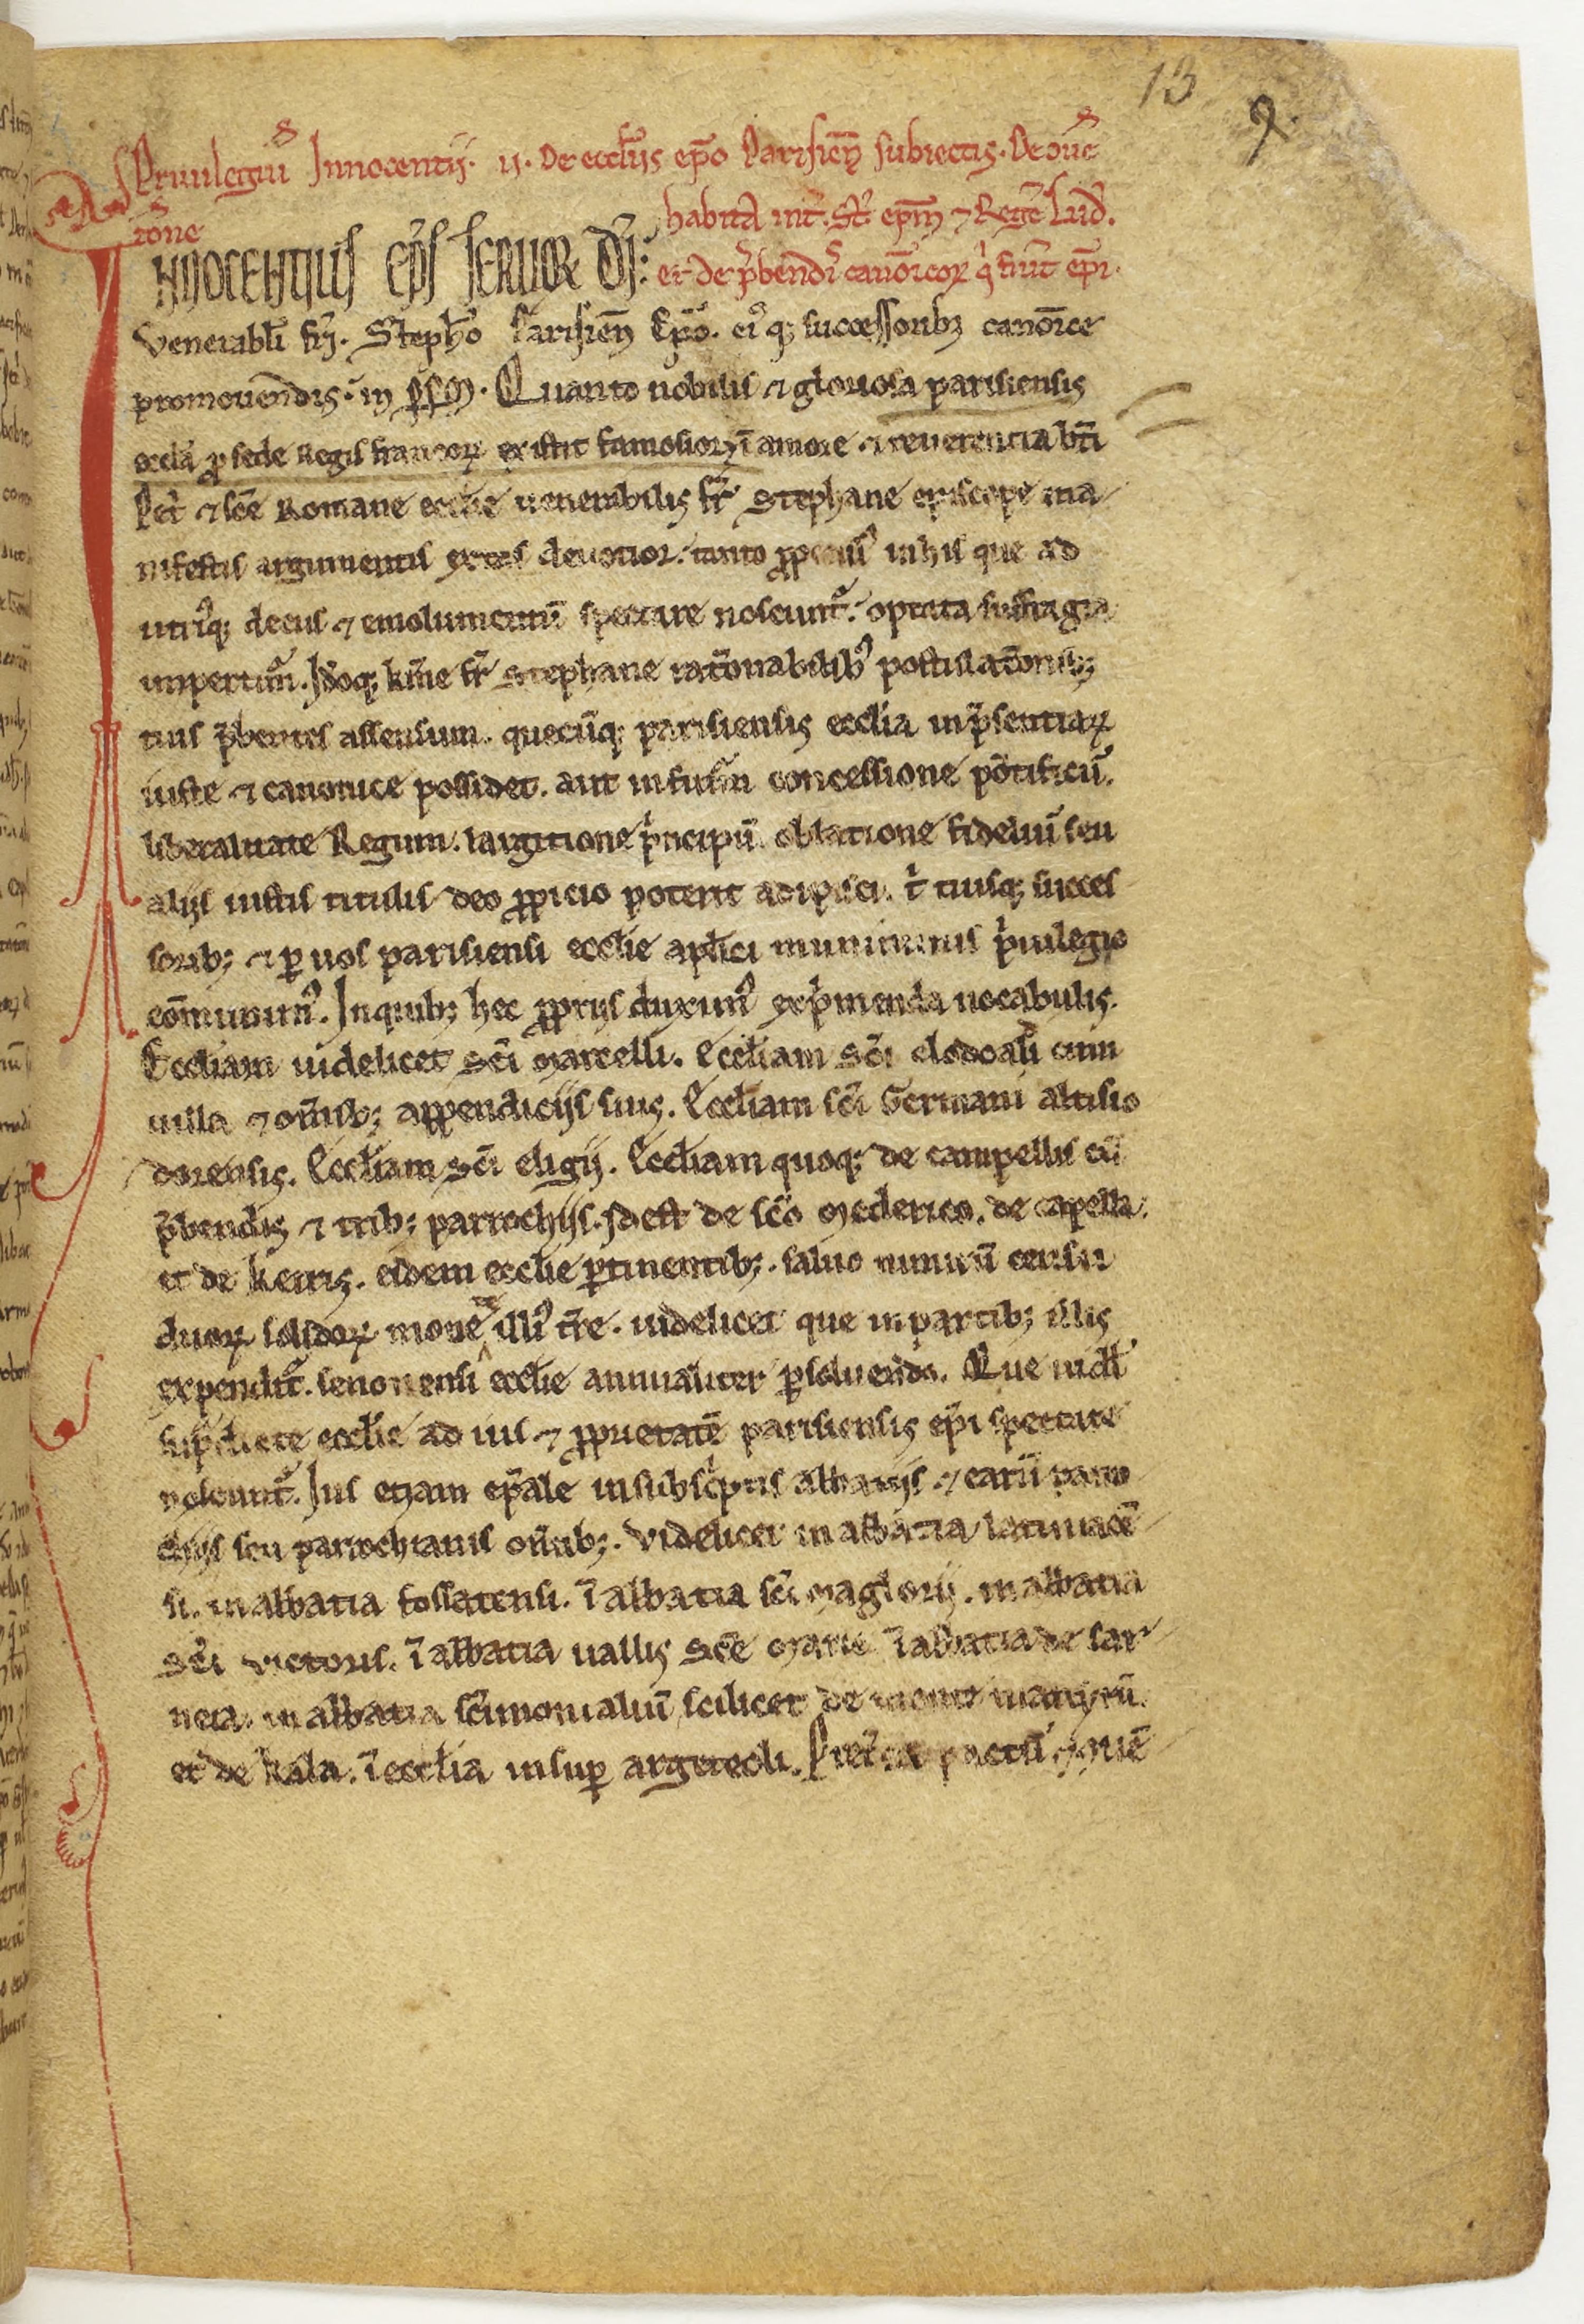 13
9.
Priuilegiū Innocentij. ij. De eccl'iis ep̄o Parisień subiectis. De ɔuē
tōne
habita int̄. St. ep̄m ⁊ Regē Lud.
INNOCENTIUS EP̄S SERUOꝜ D̄I:
et de p̄bendis canōicoꝝ
Venerabl'i fr̄i. Steph̄o Parisień Ep̄o. ei'q; successorib; canōice
promouendis. in ꝑꝑm. Quanto nobilis ⁊ gloriosa parisiensis
eccl'a ꝓ sede Regis francoꝝ existit famosior; ī amore ⁊ reuerencia bt̄i
Pet' ⁊ sc̄e Romane eccl'ie uenerabilis fr̄ Stephane episcope ma
nifestis argumentis extas deuotior. tanto ꝓpensi' in his que ad
utri'q; decus ⁊ emolumentū spectare noscunt᷑. optata suffragia
impertim᷑. Idoq; k̄me fr̄ Stephane rat̄onabilib' postulat̄onib;
tuis p̄bentes assensum. quecūq; parisiensis eccl'ia in p̄sentiaꝝ
iuste ⁊ canonice possidet. aut in futurū concessione pōtificū.
liberalitate Regum. largitione p'ncipū oblatione fideliū seu
alijs iustis titulis deo ꝓpicio poterit adipisci. t' tuisq; succes
sorib; ⁊ ꝑ uos parisiensi eccl'ie apl'ici muniminis p'uilegio
cōmunim'. In quib; hec ꝓprijs duxim' exp'menda uocabulis.
Eccl'iam uidelicet Sc̄i Marcelli. Eccl'iam Sc̄i clodoaldi cum
uilla ⁊ om̄ib; appendicijs suis. Eccl'iam sc̄i Germani altisio
dorensis. Eccl'iam Sc̄i eligij. Eccl'iam quoq; de campellis cū
p̄bendis ⁊ trib; parrochijs. id est de sc̄o Mederico. de capella.
et de kerris. eidem eccl'ie ꝑtinentib;. saluo nimirū censu
duoꝝ solidoꝝ monete illi' tr̄e. uidelicet que in partib; illis
expendit᷑. senonensi eccl'ie annualiter ꝑsoluendo. Que uidel'
sup̄dicte eccl'ie ad ius ⁊ ꝓprietatē parisiensis ep̄i spectare
noscunt᷑. Ius etiam ep̄ale in subsc'ptis abbatijs. ⁊ earū parro
chijs seu parrochianis om̄ib;. Videlicet in abbatia latiniacē
si. in abbatia fossatensi. ī abbatia sc̄i Maglorij. in abbatia
Sc̄i Victoris. ī abbatia uallis Sc̄e Marie ī abbatia de sar
neia. in abbatia sc̄imonialiū scilicet de monte martyrū.
et de kala. ī eccl'ia insuꝑ argeteoli. Pret'ea pactū ⁊ ɔuē